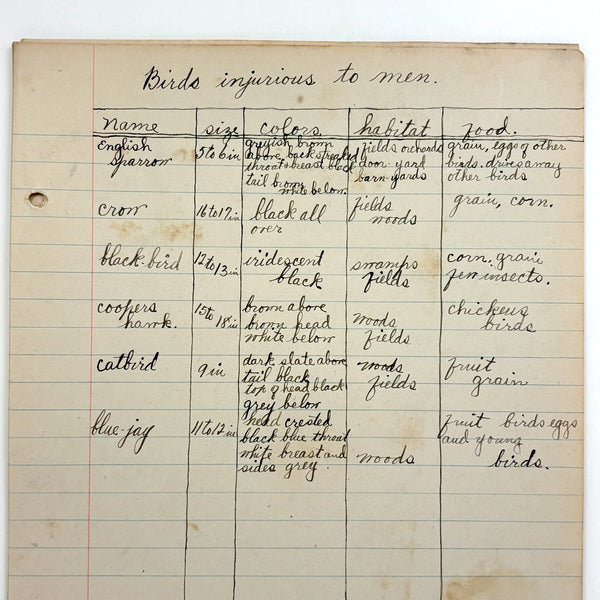 Birds injurious to men.
name size colors habitat food.
English sparrow 5 to 6 in greyish brown above, back streaked throat & breast black tail brown white below. fields orchards door-yard barn-yards grain, eggs of other birds. drives away other birds
crow 16 to 17 in black all over fields woods grain, corn.
black-bird 12 to 13 in iridescent black swamps fields corn. grain few insects.
coopers hawk. 15 to 18 in brown above brown head white below woods fields chickens birds
catbird 9 in dark slate above tail black top of head black grey below woods fields fruit grain
blue-jay 11 to 12 in head crested black blue throat white breast and sides grey. woods fruit birds eggs and young birds.